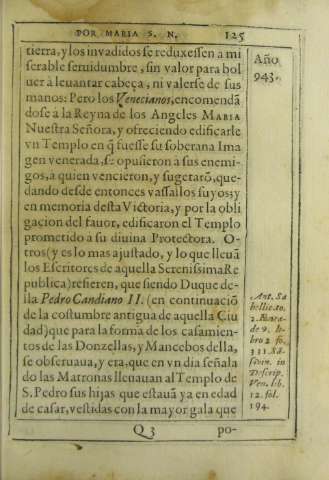 POR MARIA S. N. 125
tierra, y los invadidos se reduxessen a mi
serable seruidumbre, sin valor para bol
uer à leuantar cabeça, ni valerse de sus
manos: Pero los Venecianos, encomendã
dose à la Reyna de los Angeles MARIA
Nuestra Señora, y ofreciendo edificarle
vn Templo en q̃ fuesse su soberana Ima
gen venerada, se opusieron a sus enemi-
gos, a quien vencieron, y sugetarõ, que-
dando desde entonces vassallos suyos; y
en memoria desta Victoria, y por la obli
gacion del fauor, edificaron el Templo
prometido a su diuina Protectora. O-
tros (y es lo mas ajustado, y lo que lleuã
los Escritores de aquella Serenissima Re
publica) refieren, que siendo Duque de-
lla Pedro Candiano II. (en continuaciõ
de la costumbre antigua de aquella Ciu
dad) que para la forma de los casamien-
tos de las Donzellas, y Mancebos della,
se obseruaua, y era, que en vn dia señala
do las Matronas lleuauan al Templo de
S. Pedro sus hijas que estauã ya en edad
de casar, vestidas con la mayor gala que
Q 3 po-
Año
943.
Ant. Sa
bellico to.
2. Enea-
de 9. li-
bro 2. fo.
311. Sã-
souin. in
Descrip.
Ven. lib.
12. fol.
194.